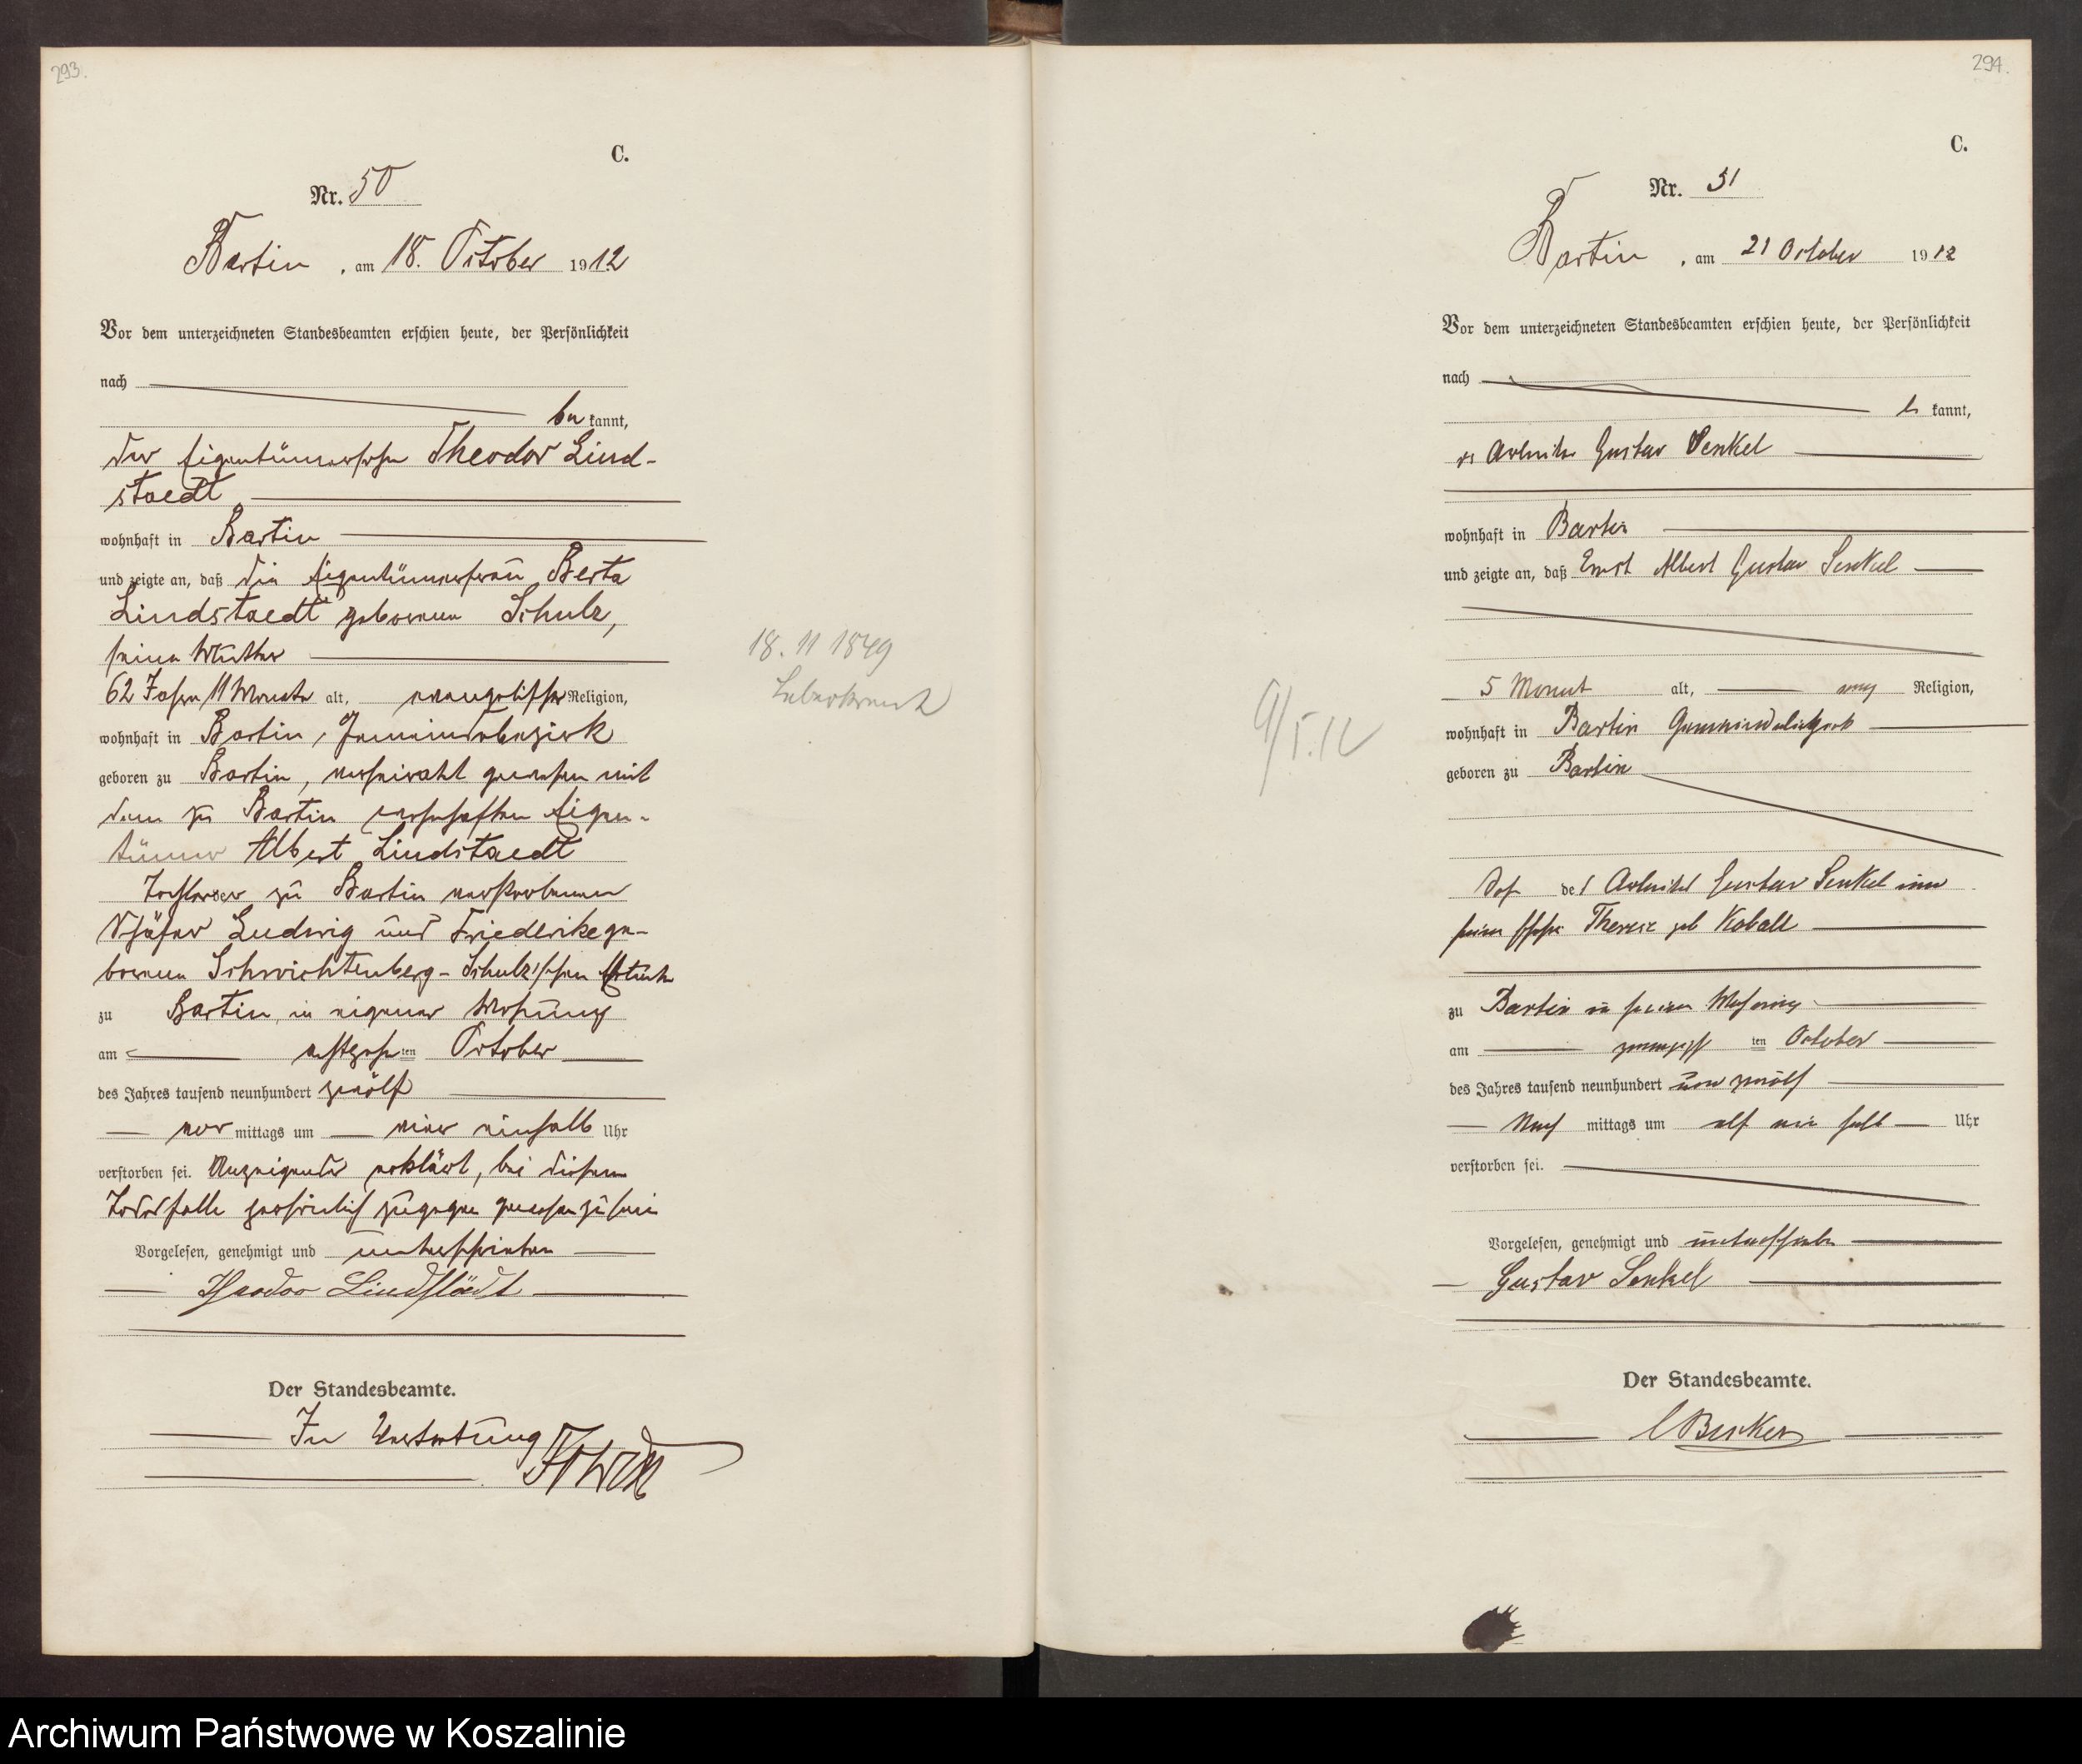 293.
C.
Nr. 50
Bartin, am 18. October 1912
Vor dem unterzeichneten Standesbeamten erschien heute, der Persönlichkeit
nach
be kannt,
der Eigentümersohn Theodor Lind-
staedt
wohnhaft in Bartin
und zeigte an, daß die Eigentümerfrau Berta
Lindstaedt geborenen Schulz,
seine Mutter
62 Jahre 11 Monate alt, evangelischer Religion,
wohnhaft in Bartin, Gemeindebezirk
geboren zu Bartin, verheiratet gewesen mit
dem zu Bartin wohnhaften Eigen-
tümer Albert Lindstaedt
Tochter der zu Bartin verstorbenen
Schäfer Ludwig und Friederike ge-
borenen Schwichtenberg-Schulz'schen Eheleute
zu Bartin, in eigener Wohnung
am achtzehnten October
des Jahres tausend neunhundert zwölf
vor mittags um vier einhalb Uhr
verstorben sei. Anzeigender erklärt, bei diesem
Todesfalle persönlich zugegen gewesen zu sein
Vorgelesen, genehmigt und unterschrieben
Theodor Lindstädt
Der Standesbeamte.
In Vertretung
18. 11 1849
Leberkrank
294.
C.
Nr. 51
Bartin, am 21 October 1912
Vor dem unterzeichneten Standesbeamten erschien heute, der Persönlichkeit
nach
be kannt,
Arbeiter Gustav Senkel
wohnhaft in Bartin
und zeigte an, daß Ernst Albert Gustav Senkel
5 Monat alt, evang Religion,
wohnhaft in Bartin Gemeindebezirk
geboren zu Bartin
Sohn des Arbeiter Gustav Senkel und
seiner Ehefrau Therese geb Koball
zu Bartin in seiner Wohnung
am zwanzigsten October
des Jahres tausend neunhundert und zwölf
Nach mittags um elf ein halb Uhr
verstorben sei.
Vorgelesen, genehmigt und unterschrieben
Gustav Senkel
Der Standesbeamte.
9/5.12
Archiwum Państwowe w Koszalinie